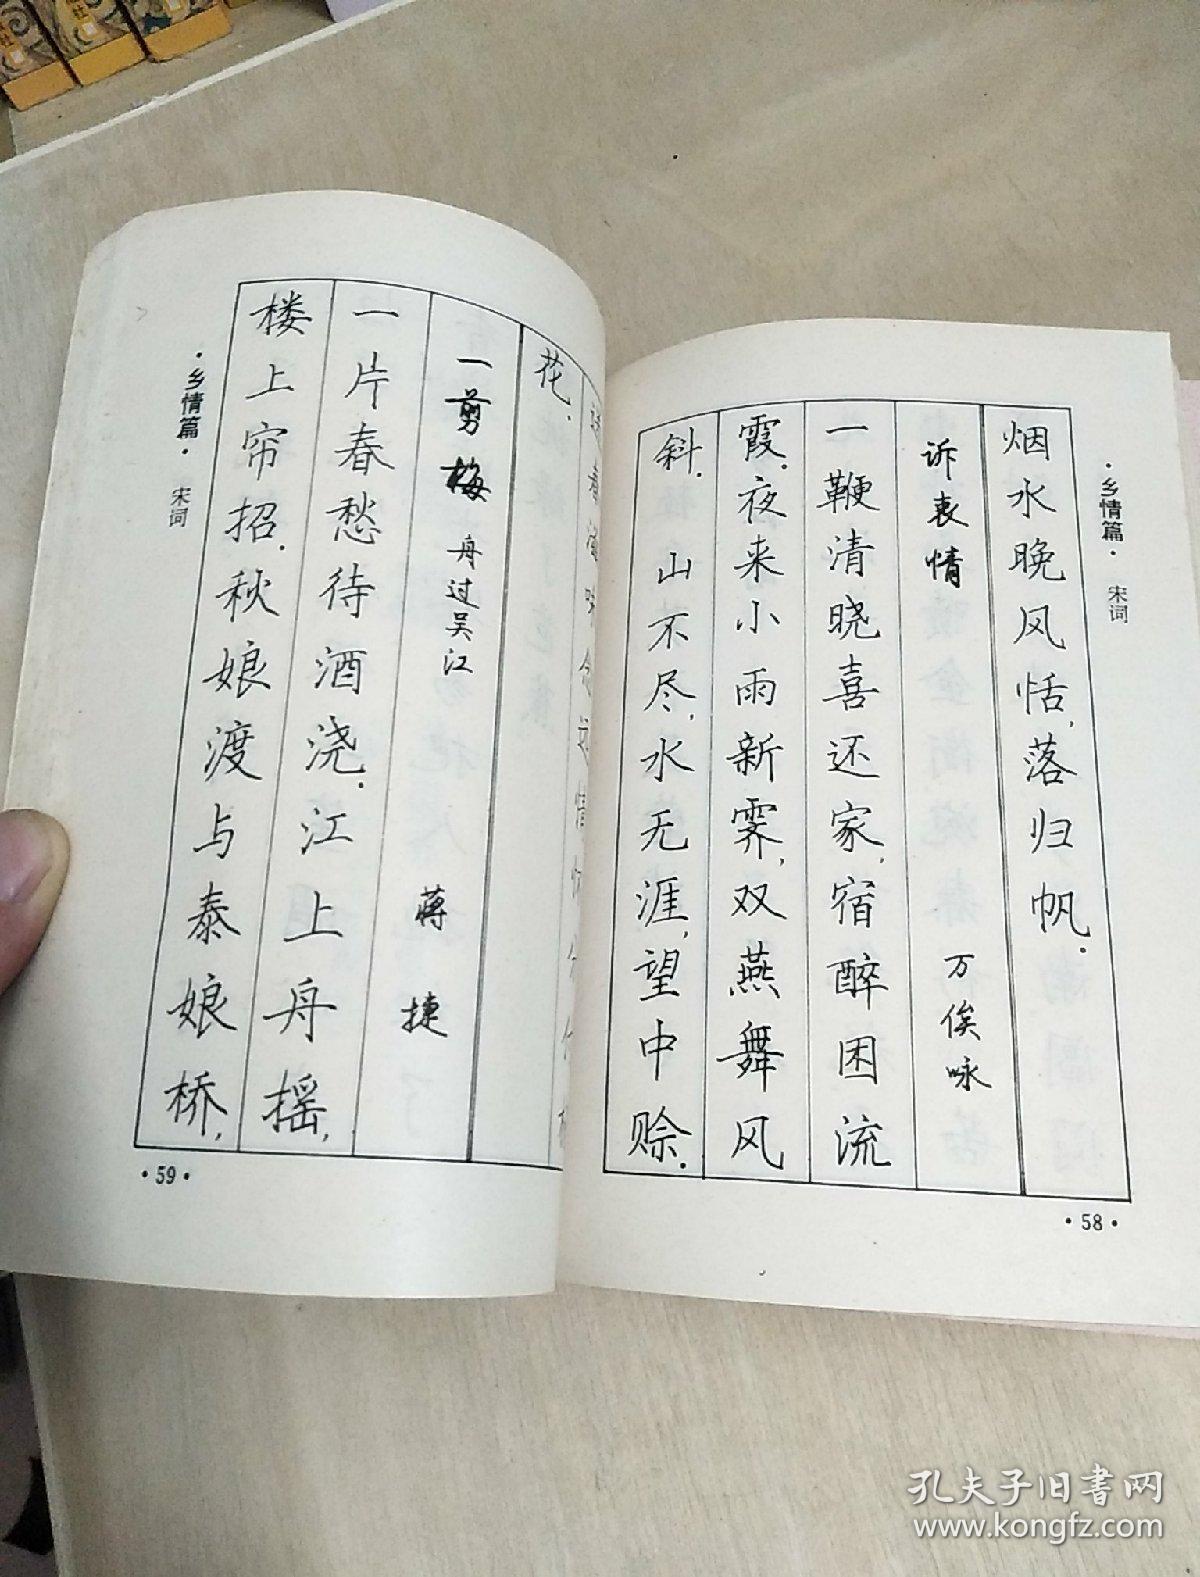 ·乡情篇· 宋词
烟水晚风恬,落归帆.
诉衷情 万俟咏
一鞭清晓喜还家,宿醉困流
霞.夜来小雨新霁,双燕舞风
斜. 山不尽,水无涯,望中赊.
·58·
春滋味念远情怀分付
花.
一剪梅 舟过吴江 蒋捷
一片春愁待酒浇.江上舟摇,
楼上帘招.秋娘渡与泰娘桥,
·乡情篇· 宋词
·59·
孔夫子旧书网
www.kongfz.com